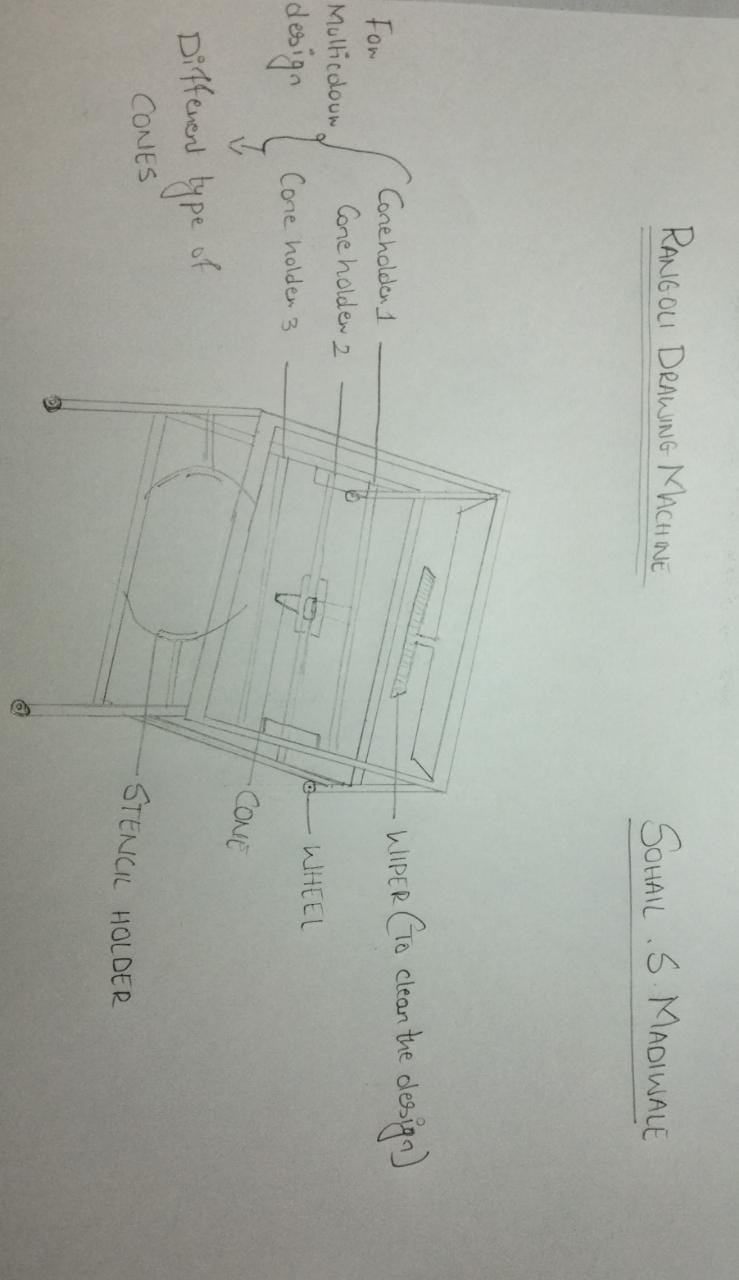 RANGOLI DRAWING MACHINE
SOHAIL . S. MADIWALE
For
Multicolour
design
Coneholder 1
Cone holder 2
Cone holder 3
Different type of
CONES
WIPER (To clean the design)
WHEEL
CONE
STENCIL HOLDER